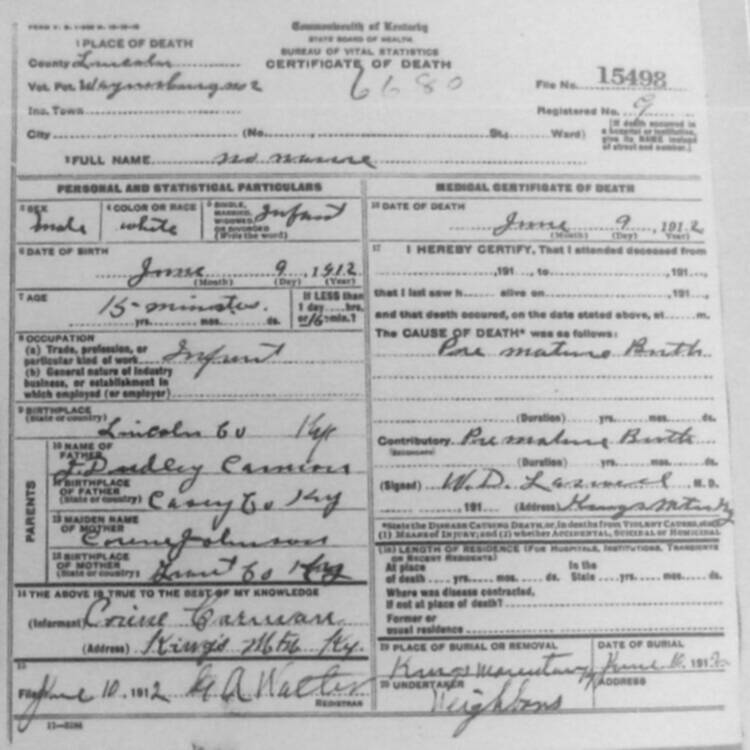 Commonwealth of Kentucky
STATE BOARD OF HEALTH
BUREAU OF VITAL STATISTICS
CERTIFICATE OF DEATH
1 PLACE OF DEATH
County Lincoln
Vot. Pct. Waynesburg no 2
6680
File No. 15498
Inc. Town
Registered No. 9
City (No. St., Ward)
[If death occurred in a hospital or institution, give its NAME instead of street and number.]
2 FULL NAME no name
PERSONAL AND STATISTICAL PARTICULARS
3 SEX male
4 COLOR OR RACE white
5 SINGLE, MARRIED, WIDOWED, OR DIVORCED (Write the word) Infant
6 DATE OF BIRTH
June 9, 1912
(Month) (Day) (Year)
7 AGE
15 minutes
yrs. mos. ds.
If LESS than 1 day hrs. or 15 min.?
8 OCCUPATION
(a) Trade, profession, or particular kind of work Infant
(b) General nature of industry business, or establishment in which employed (or employer)
9 BIRTHPLACE
(State or country) Lincoln Co Ky
PARENTS
10 NAME OF FATHER
J. Dudley
11 BIRTHPLACE OF FATHER
(State or country) Casey Co Ky
12 MAIDEN NAME OF MOTHER
Corene Johnson
13 BIRTHPLACE OF MOTHER
(State or country) Grant Co Ky
14 THE ABOVE IS TRUE TO THE BEST OF MY KNOWLEDGE
(Informant) Corine Carman
(Address) Kings Mtn Ky.
15
Filed June 10, 1912 Walter
REGISTRAR
11-3184
MEDICAL CERTIFICATE OF DEATH
16 DATE OF DEATH
June 9, 1912
(Month) (Day) (Year)
17 I HEREBY CERTIFY, That I attended deceased from
, 191 , to , 191 ,
that I last saw h alive on , 191 ,
and that death occured, on the date stated above, at m.
The CAUSE OF DEATH* was as follows:
Pre mature Birth
(Duration) yrs. mos. ds.
Contributory Pre mature Birth
(SECONDARY)
(Duration) yrs. mos. ds.
(Signed) W. D. M. D.
, 191 (Address) Kings Mtn Ky
*State the DISEASE CAUSING DEATH, or, in deaths from VIOLENT CAUSES, state
(1) MEANS OF INJURY; and (2) whether ACCIDENTAL, SUICIDAL or HOMICIDAL
18 LENGTH OF RESIDENCE (FOR HOSPITALS, INSTITUTIONS, TRANSIENTS OR RECENT RESIDENTS)
At place of death yrs. mos. ds. In the State yrs. mos. ds.
Where was disease contracted,
if not at place of death?
Former or
usual residence
19 PLACE OF BURIAL OR REMOVAL
Kings Mountain
DATE OF BURIAL
June 10, 1912
20 UNDERTAKER
Neighbors
ADDRESS